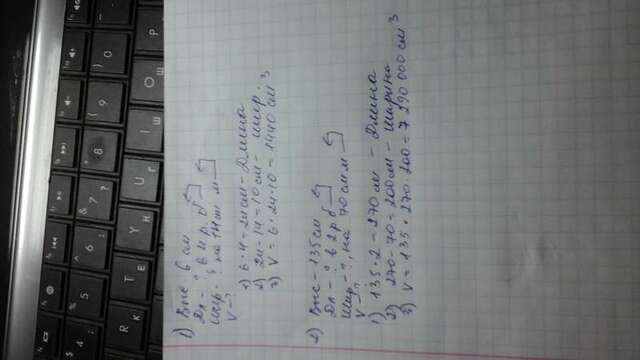 4 ; 5 % 6 : 7 ? 8 * 9 ( 0 )
R К T Е Y Н U Г I Ш O Щ P
1) Выс 6 см
Дл - ? в 4 р. б
Шир - ? на 14 см м
V - ?
1) 6 · 4 = 24 см - Длина
2) 24 - 14 = 10 см - шир.
3) V = 6 · 24 · 10 = 1440 см³
2) Выс - 135 см
Дл - ? в 2 р б
Шир - ?, на 70 см м
V - ?
1) 135 · 2 = 270 см - Длина
2) 270 - 70 = 200 см - ширина
3) V = 135 · 270 · 200 = 7 290 000 см³